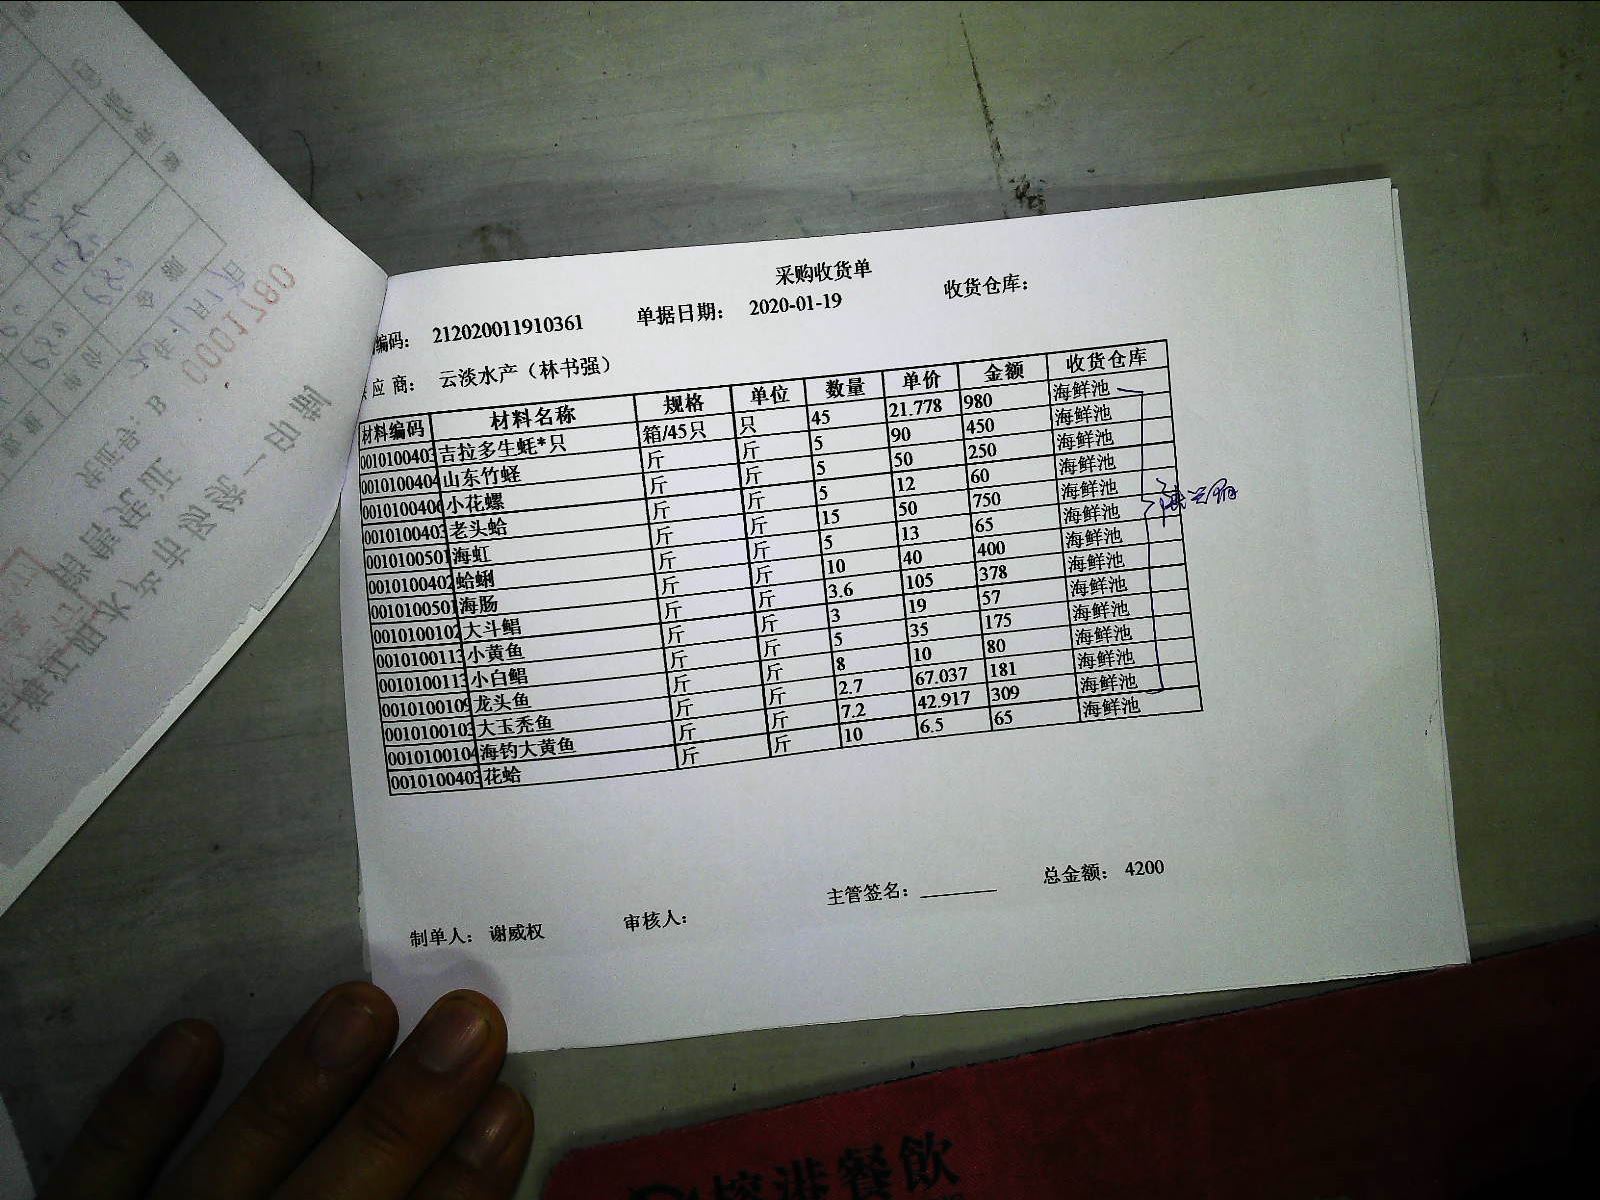 采购收货单
编码： 212020011910361 单据日期： 2020-01-19 收货仓库：
应 商： 云淡水产（林书强）
材料编码 材料名称 规格 单位 数量 单价 金额 收货仓库
0010100403 吉拉多生蚝*只 箱/45只 只 45 21.778 980 海鲜池
0010100404 山东竹蛏 斤 斤 5 90 450 海鲜池
0010100406 小花螺 斤 斤 5 50 250 海鲜池
0010100403 老头蛤 斤 斤 5 12 60 海鲜池
0010100501 海虹 斤 斤 15 50 750 海鲜池
0010100402 蛤蜊 斤 斤 5 13 65 海鲜池
0010100501 海肠 斤 斤 10 40 400 海鲜池
0010100102 大斗鲳 斤 斤 3.6 105 378 海鲜池
0010100113 小黄鱼 斤 斤 3 19 57 海鲜池
0010100113 小白鲳 斤 斤 5 35 175 海鲜池
0010100109 龙头鱼 斤 斤 8 10 80 海鲜池
0010100103 大玉秃鱼 斤 斤 2.7 67.037 181 海鲜池
0010100104 海钓大黄鱼 斤 斤 7.2 42.917 309 海鲜池
0010100403 花蛤 斤 斤 10 6.5 65 海鲜池
制单人： 谢威权 审核人： 主管签名： 总金额： 4200
0871000
港餐飲